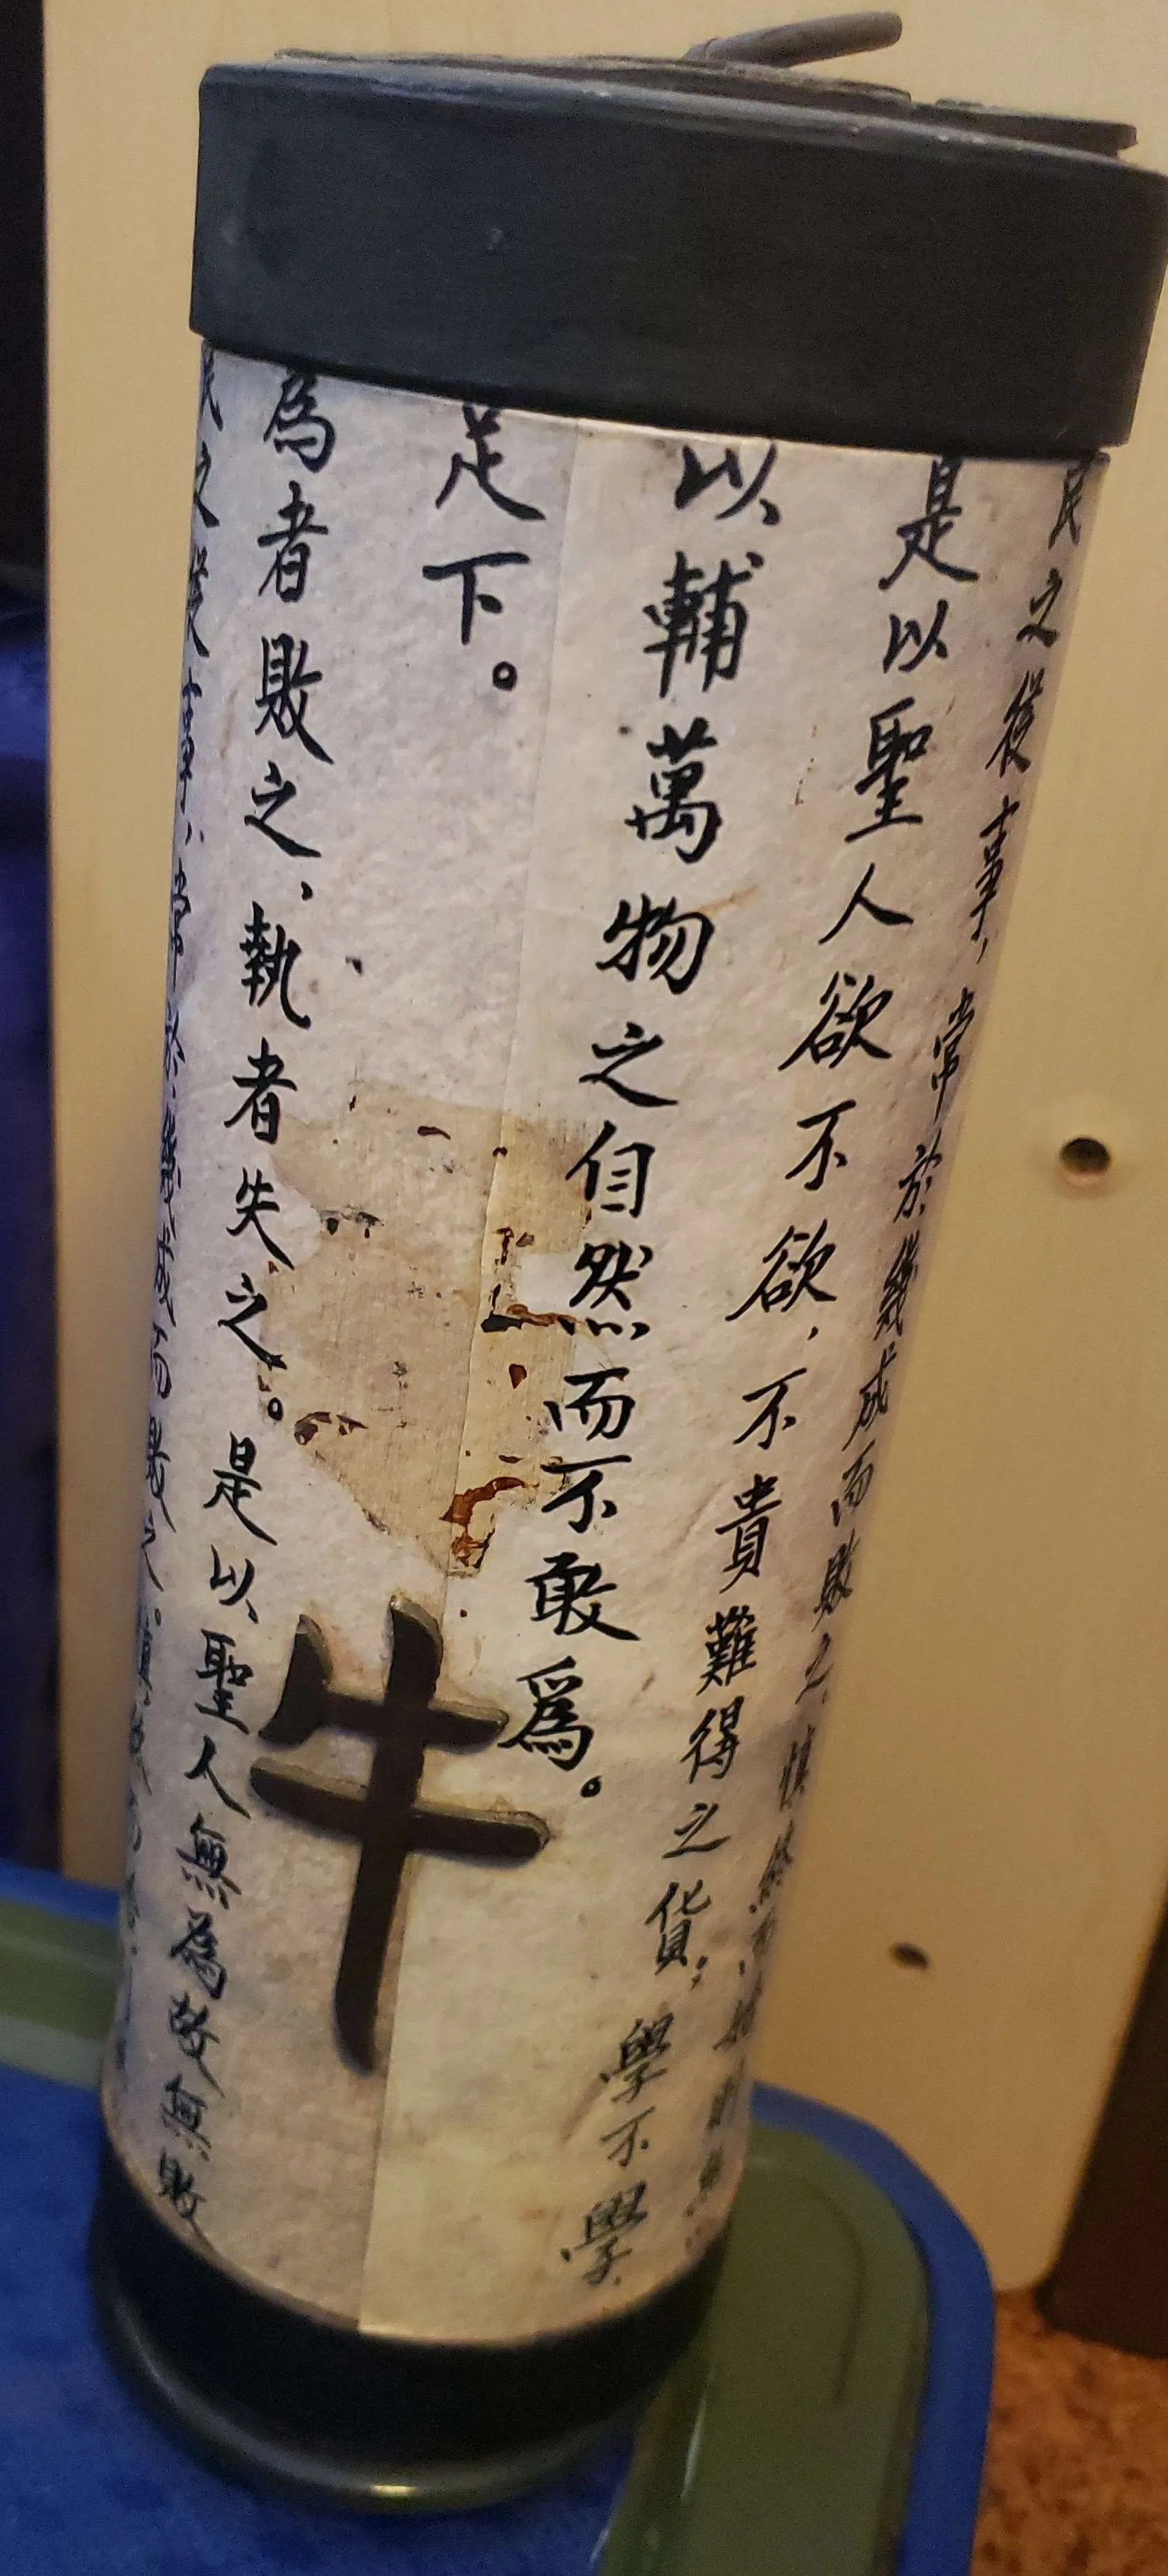 民之從事，常於幾成而敗之。慎終
是以聖人欲不欲，不貴難得之貨；學不學
以輔萬物之自然而不敢爲。
足下。
為者敗之、執者失之。是以聖人無為故無敗
民之從事，常於幾成而敗之。
牛